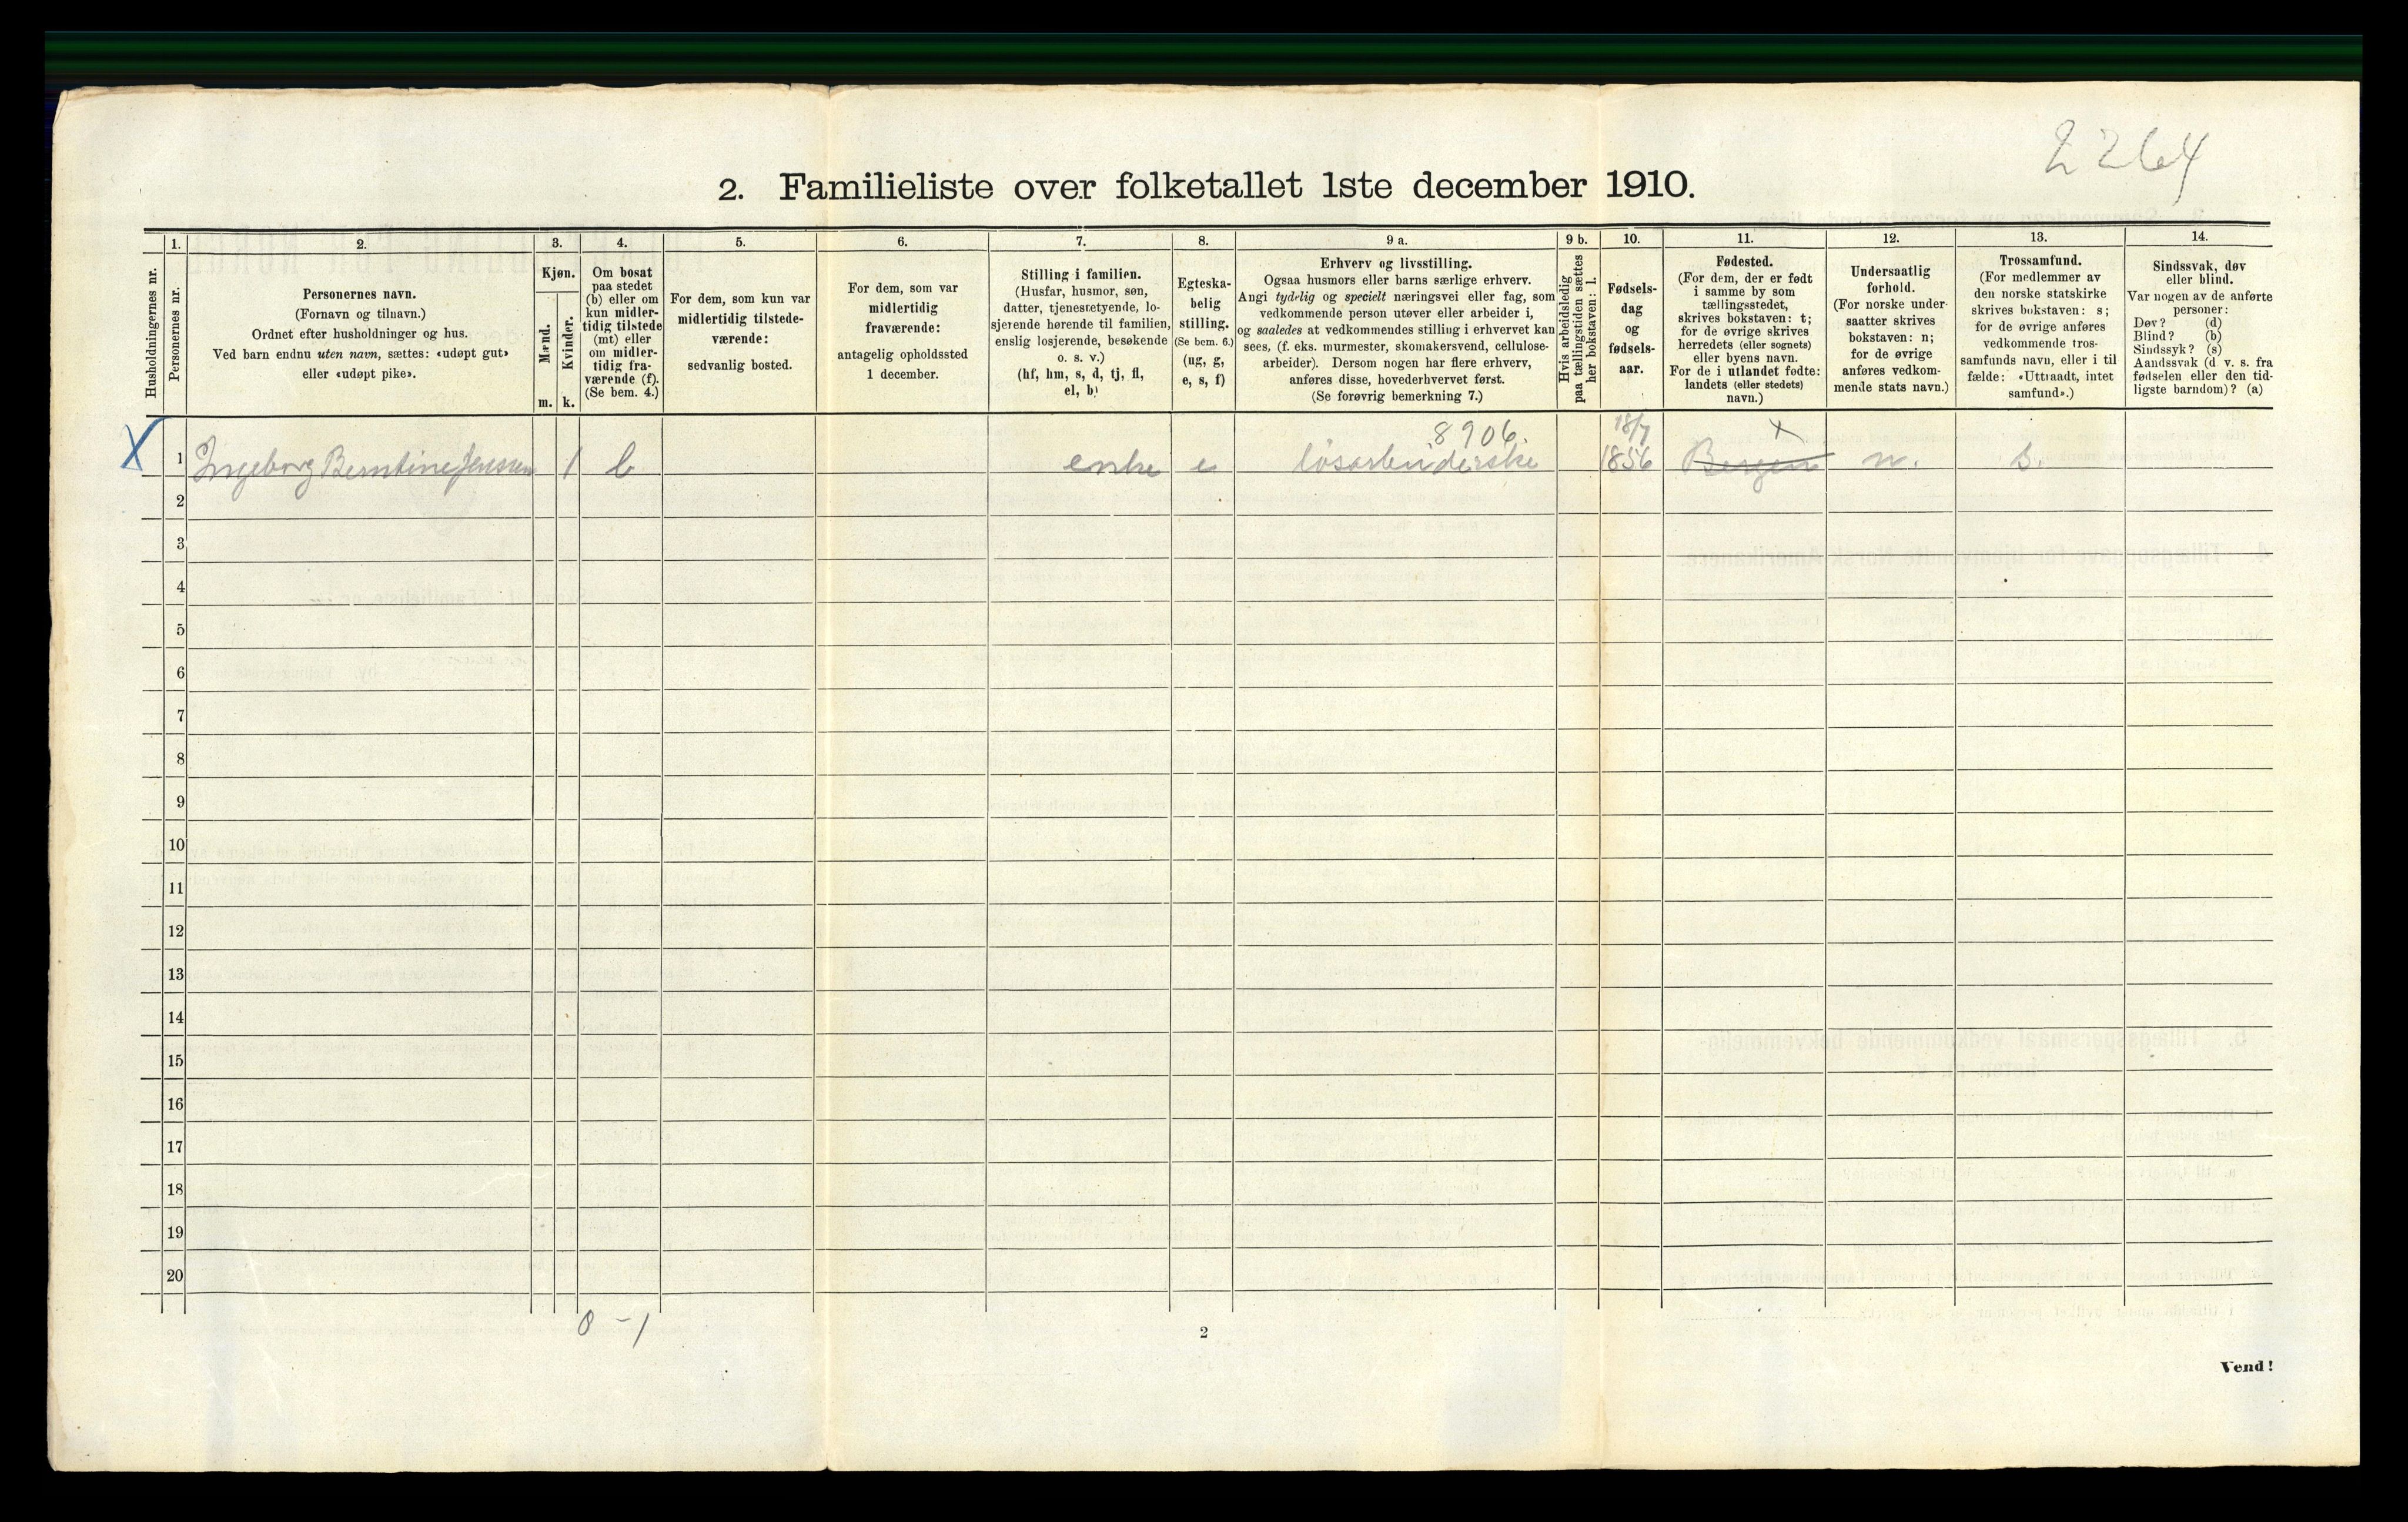 2264
2. Familieliste over folketallet 1ste december 1910.
Husholdningernes nr.
1.
Personernes nr.
2.
Personernes navn.
(Fornavn og tilnavn.)
Ordnet efter husholdninger og hus.
Ved barn endnu uten navn, sættes: «udøpt gut»
eller «udøpt pike».
3.
Kjøn.
Mænd.
Kvinder.
m. k.
4.
Om bosat
paa stedet
(b) eller om
kun midler-
tidig tilstede
(mt) eller
om midler-
tidig fra-
værende (f).
(Se bem. 4.)
5.
For dem, som kun var
midlertidig tilstede-
værende:
sedvanlig bosted.
6.
For dem, som var
midlertidig
fraværende:
antagelig opholdssted
1 december.
7.
Stilling i familien.
(Husfar, husmor, søn,
datter, tjenestetyende, lo-
sjerende hørende til familien,
enslig losjerende, besøkende
o. s. v.)
(hf, hm, s, d, tj, fl,
el, b)
8.
Egteska-
belig
stilling.
(Se bem. 6.)
(ug, g,
e, s, f)
9 a.
Erhverv og livsstilling.
Ogsaa husmors eller barns særlige erhverv.
Angi tydelig og specielt næringsvei eller fag, som
vedkommende person utøver eller arbeider i,
og saaledes at vedkommendes stilling i erhvervet kan
sees, (f. eks. murmester, skomakersvend, cellulose-
arbeider). Dersom nogen har flere erhverv,
anføres disse, hovederhvervet først.
(Se forøvrig bemerkning 7.)
9 b.
Hvis arbeidsledig
paa tællingstiden sættes
her bokstaven: l.
10.
Fødsels-
dag
og
fødsels-
aar.
11.
Fødested.
(For dem, der er født
i samme by som
tællingsstedet,
skrives bokstaven: t;
for de øvrige skrives
herredets (eller sognets)
eller byens navn.
For de i utlandet fødte:
landets (eller stedets)
navn.)
12.
Undersaatlig
forhold.
(For norske under-
saatter skrives
bokstaven: n;
for de øvrige
anføres vedkom-
mende stats navn.)
13.
Trossamfund.
(For medlemmer av
den norske statskirke
skrives bokstaven: s;
for de øvrige anføres
vedkommende tros-
samfunds navn, eller i til
fælde: «Uttraadt, intet
samfund».)
14.
Sindssvak, døv
eller blind.
Var nogen av de anførte
personer:
Døv? (d)
Blind? (b)
Sindssyk? (s)
Aandssvak (d v. s. fra
fødselen eller den tid-
ligste barndom)? (a)
8906. 18/7 x
X 1 Ingeborg Berntine Jenssen 1 b enke e løsarbeiderske 1856 Bergen n. s.
2
3
4
5
6
7
8
9
10
11
12
13
14
15
16
17
18
19
20
0 - 1
2
Vend!